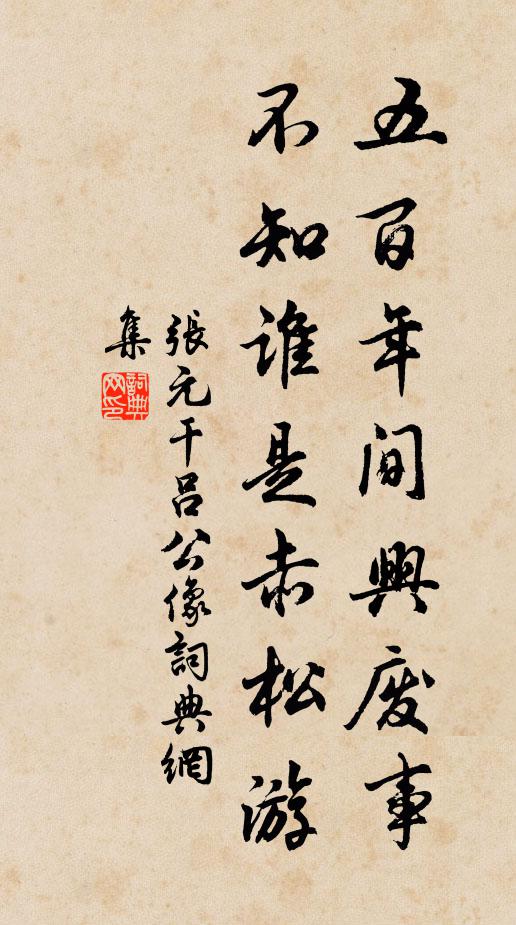 五百年间興废事
不知誰是赤松游
張元干吕公像詞典網
集
詞典
网印